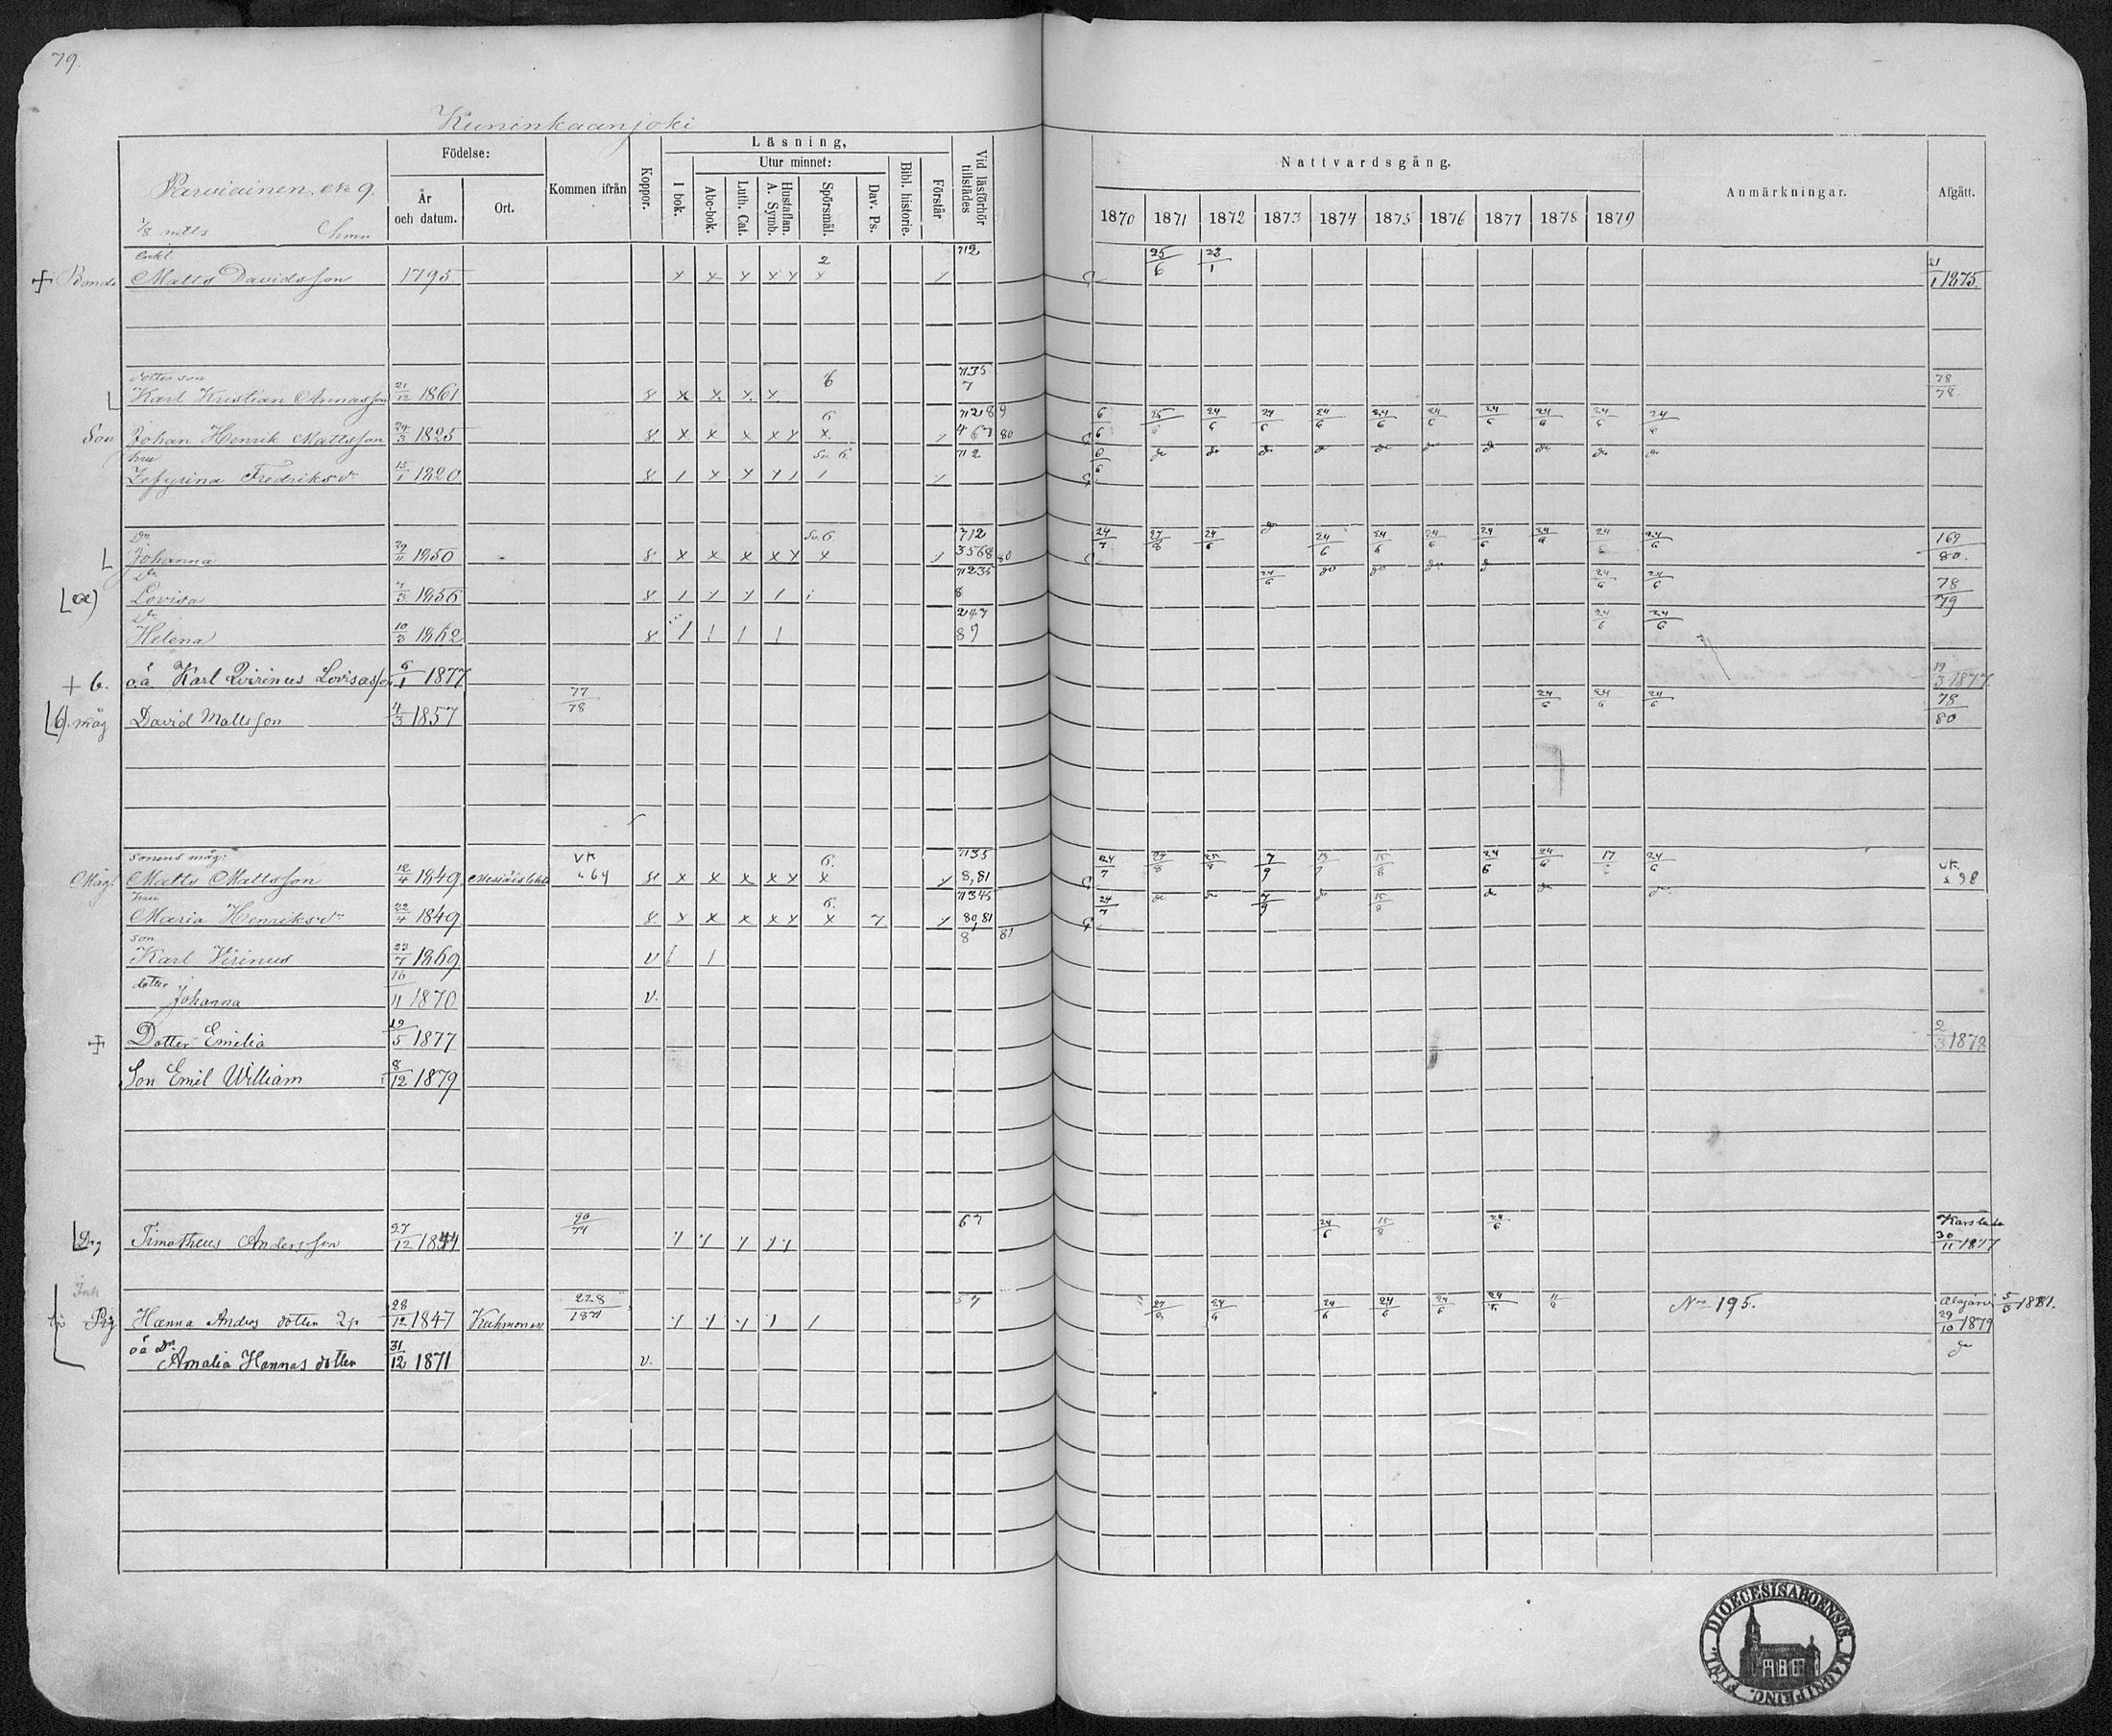 79.
Kuninkaanjoki
Parviainen, No 9.
1/8 mtls hmn
Födelse:
År och datum.
Ort.
Kommen ifrån
Koppor.
Läsning,
I bok.
Utur minnet:
Abc-bok.
Luth. Cat.
Hustaflan. A. Symb.
Spörsmål.
Dav. Ps.
Bibl. historie.
Förstår
Vid läsförhör tillstädes
Nattvardsgång.
1870 1871 1872 1873 1874 1875 1876 1877 1878 1879
Anmärkningar.
Afgått.
enkl.
Bonde Matts Davidsson 1795 x x x x x x 2 712 25/6 23/1 21/1 1875.
dotterson
Karl Kristian Annasson 21/12 1861 x x x x 6 7135 7 78/78
Son Johan Henrik Mattsson 24/3 1825 x x x x x x 6 71289 467 80 6/6 25/6 24/6 24/6 24/6 24/6 24/6 24/6 24/6 24/6 24/6
hru
Zefyrina Fredriksdr 15/1 1820 712 6/6 do do do do do do do do do do
Dr
Johanna 29/11 1850 x x x x x x 712 3568 80 24/7 27/8 24/6 do 24/6 24/6 24/6 24/6 24/6 24/6 24/6 169/80.
dr
a) Lovisa 7/3 1856 71235 8 24/6 do do do do 24/6 24/6 78/79
dr
Helena 10/3 1862 247 89 24/6 24/6
+ 6. o.ä. Karl Qvirinus Lovisasson 6/1 1877 19/3 1877
6) måg David Mattsson 4/3 1857 77/78 24/6 24/6 24/6 78/80
sonens måg:
Måg Matts Mattsson 12/4 1849 VK x x x x x x 6. 7135 8,81 24/7 27/8 7/9 15/8 24/6 24/6 17/6 24/6 VK s 98
hru
Maria Henriksdr 22/4 1849 x x x x x x 6. 7 71345 80 81 24/7 do do 7/9 do 15/8 do do do
son
Karl Virinus 23/7 1869 v 8 81
dotter
Johanna 16/11 1870 v.
Dotter Emelia 19/5 1877 2/3 1878
Son Emil William 8/12 1879
Drg Timotheus Andersson 27/12 1844 90/74 67 24/6 15/8 24/6 Karstula 30/11 1877
Inh
Pig Hanna Anders dotter 28/12 1847 Kuhmonen 228/1871 57 27/8 24/6 24/6 24/6 24/6 24/6 11/8 No 195. Alajärvi 5/5 1881. 29/10 1879
o ä Dr Amalia Hannas dotter 31/12 1871 v. do
FINL. DIOECESIS ABOENSIS MAGNI PRINC.